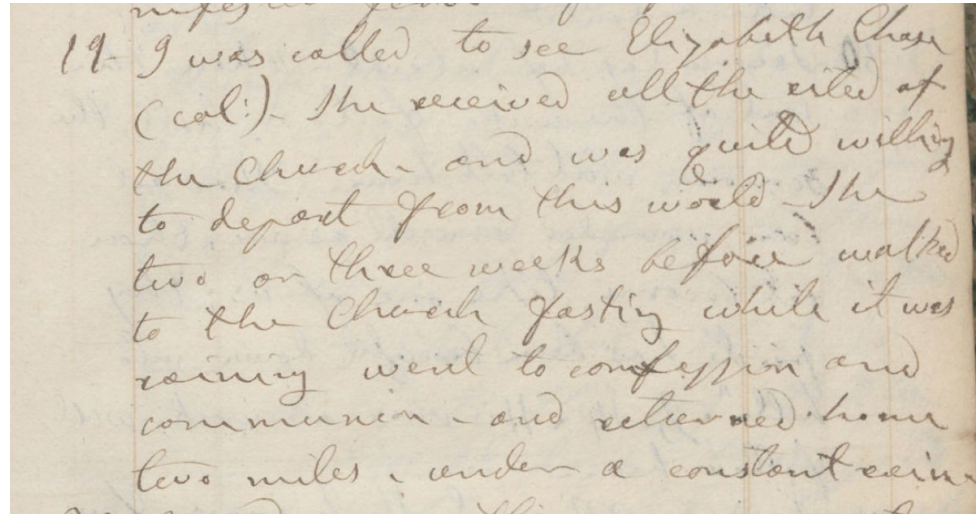 19. I was called to see Elizabeth Chase
(col:). She received all the rites of
the Church - and was quite willing
to depart from this world - She
two or three weeks before walked
to the Church fasting while it was
raining went to confession and
communion - and returned home
two miles, under a constant rain -